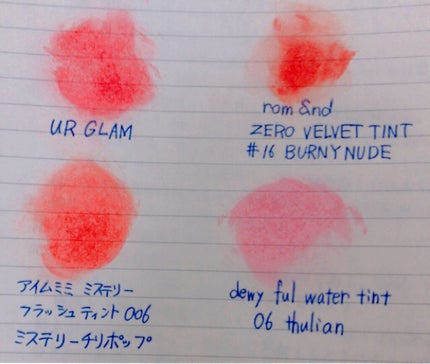 UR GLAM
rom &nd
ZERO VELVET TINT
#16 BURNY NUDE
アイムミミ ミステリー
フラッシュティント 006
ミステリーチリポップ
dewy ful water tint
06 thulian